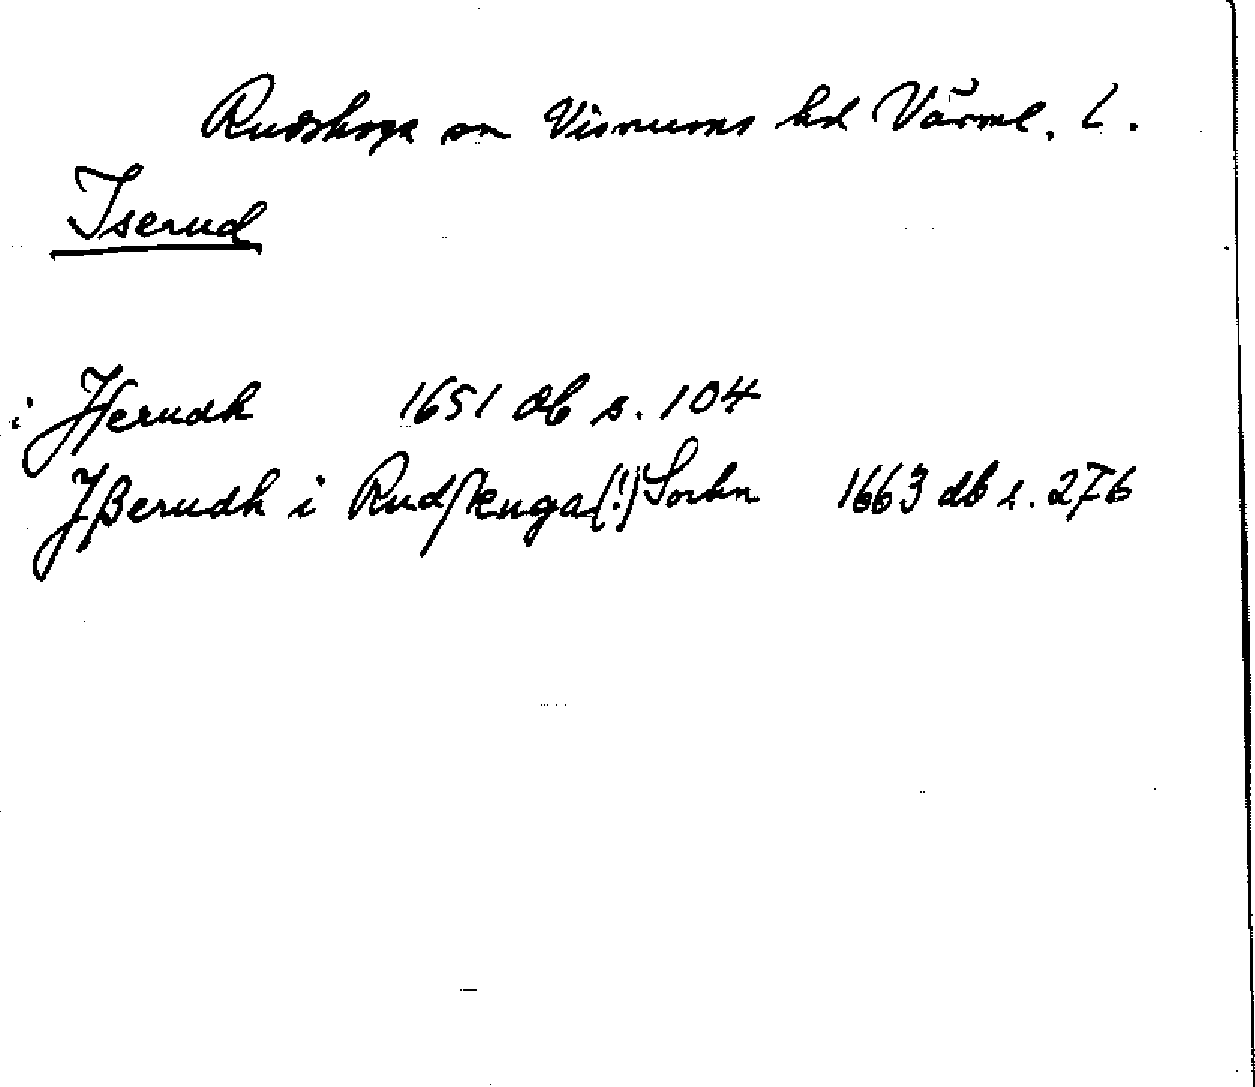 Rudskoga sn Visnums hd Värml. L.
Iserud
i Jſerudh 1651 db s. 104
Jßerudh i Rudſkuga(!) Sockn 1663 db s. 276